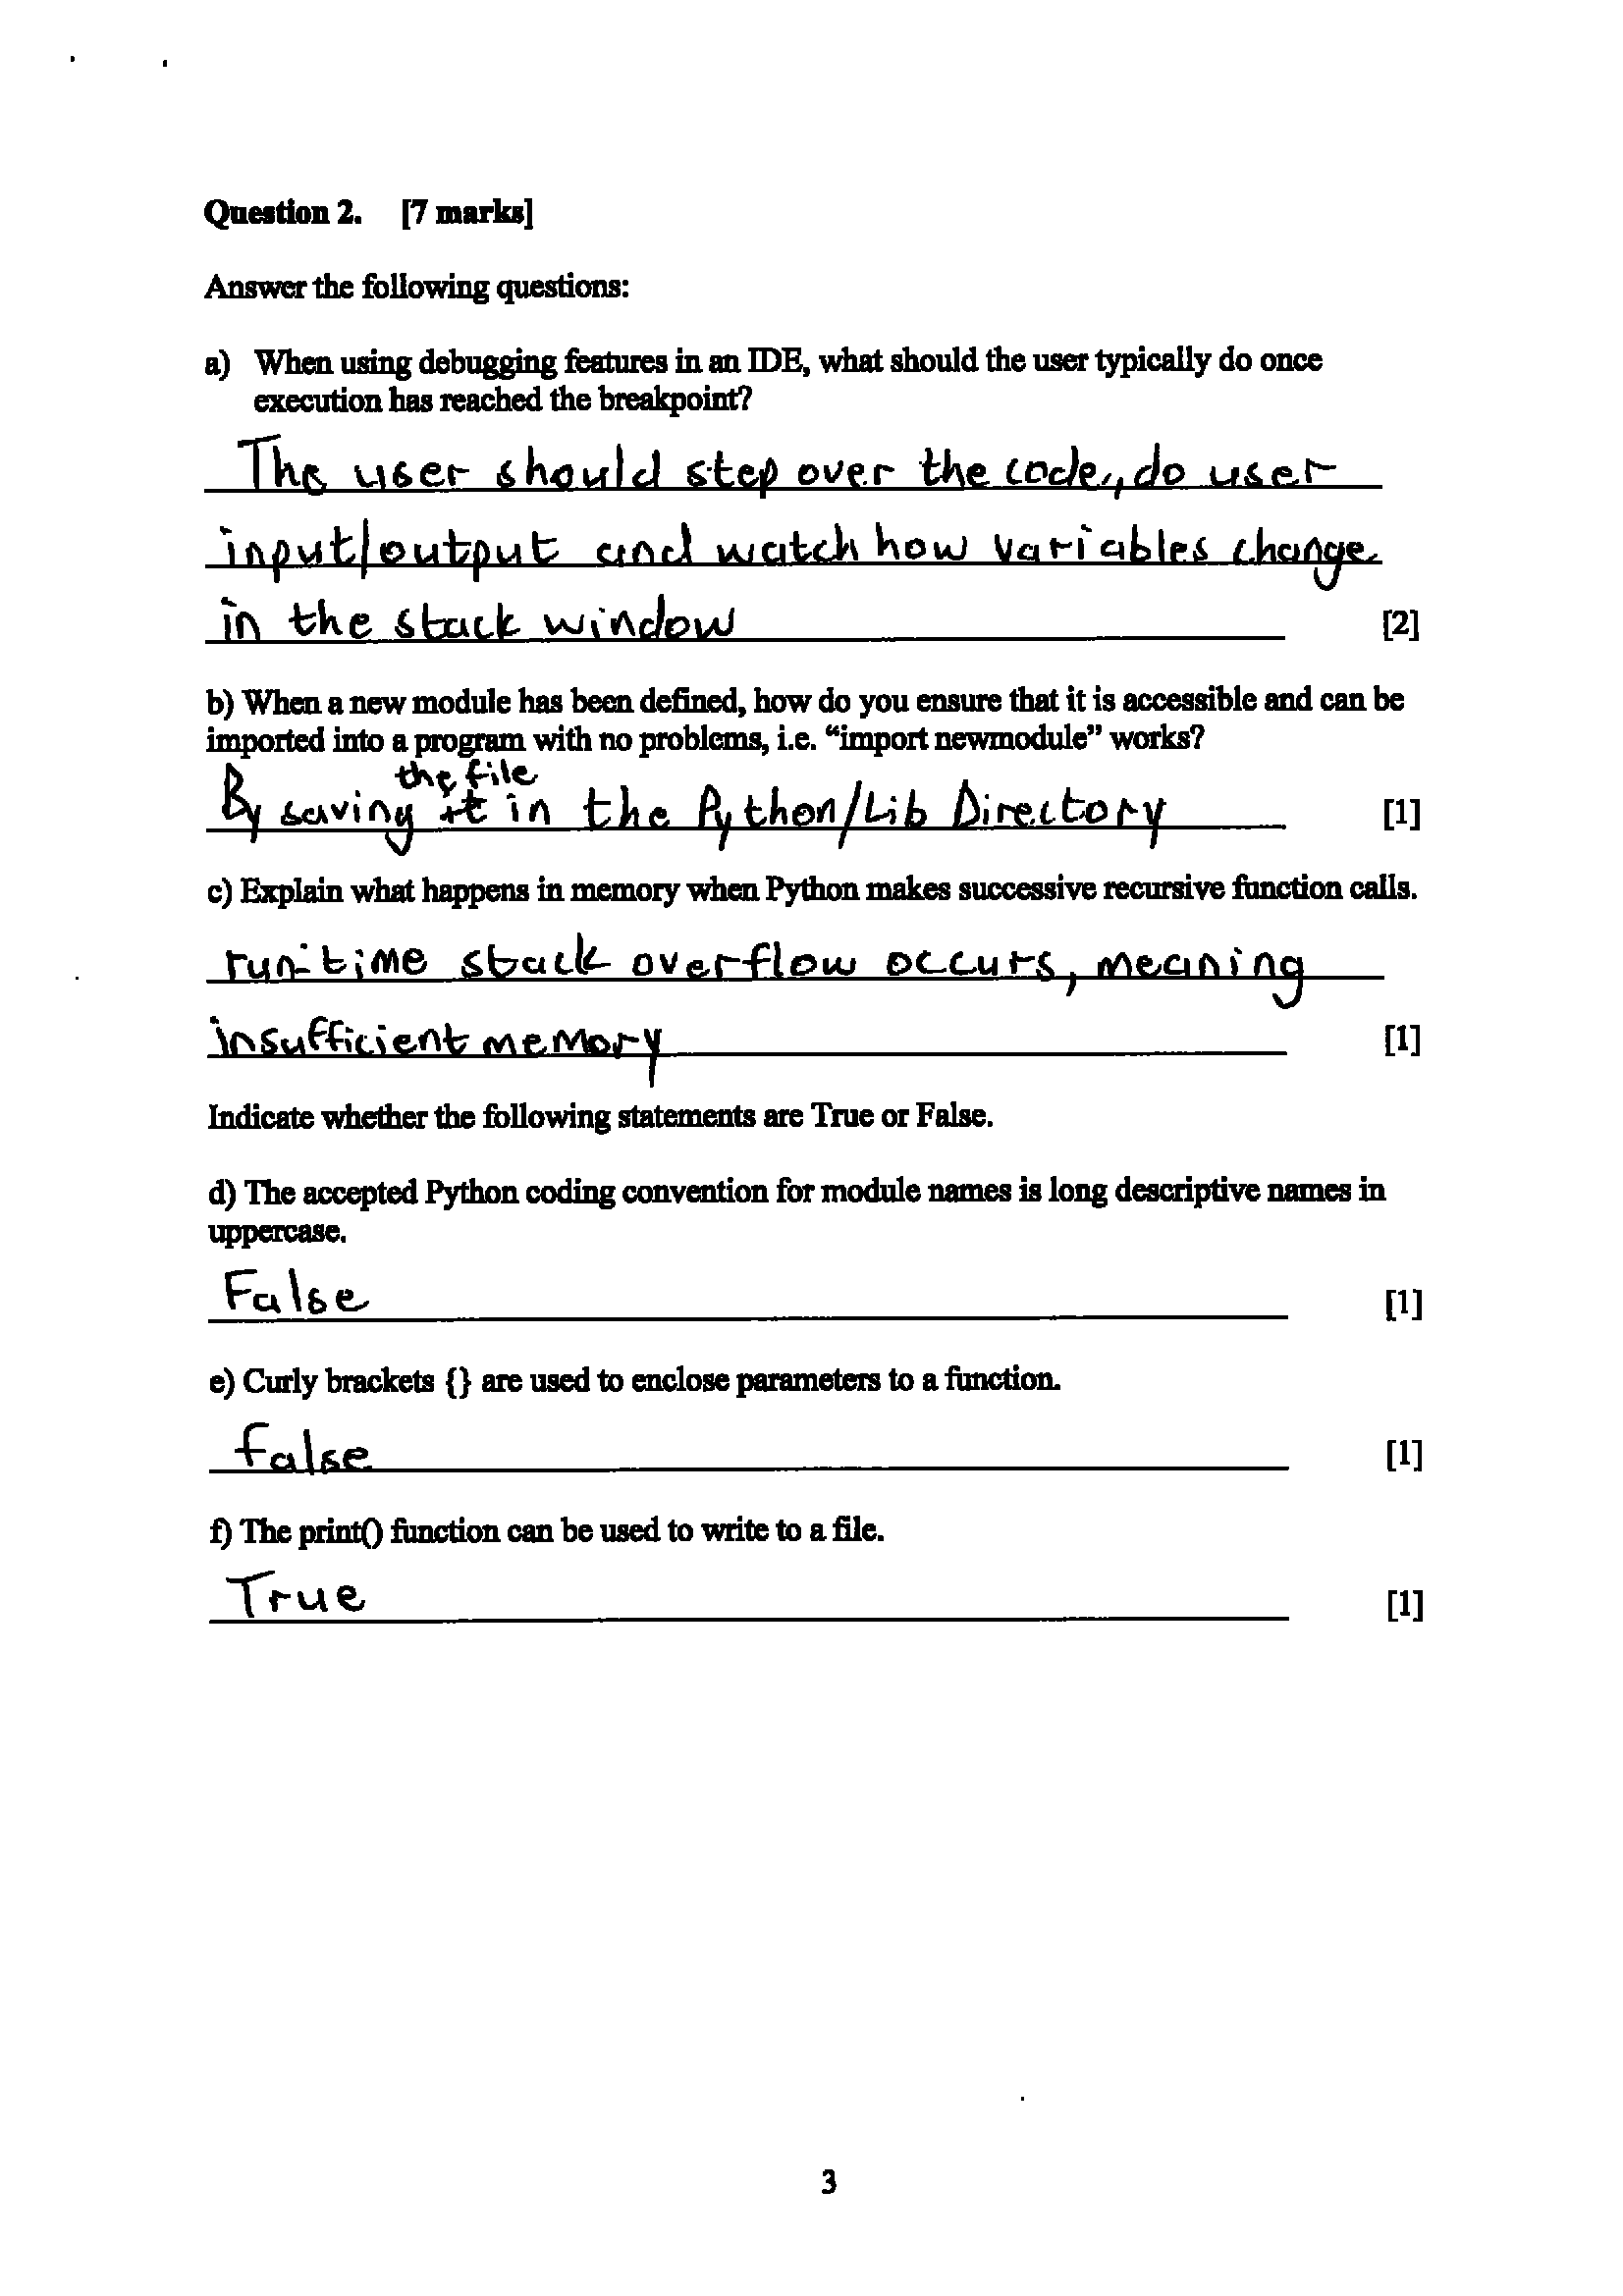 Question 2. [7 marks]
Answer the following questions:
a) When using debugging features in an IDE, what should the user typically do once
execution has reached the breakpoint?
The user should step over the code, do user
input/output and watch how variables change
in the stack window [2]
b) When a new module has been defined, how do you ensure that it is accessible and can be
imported into a program with no problems, i.e. “import newmodule” works?
the file
By saving it in the Python/Lib Directory [1]
c) Explain what happens in memory when Python makes successive recursive function calls.
run-time stack overflow occurs, meaning
insufficient memory [1]
Indicate whether the following statements are True or False.
d) The accepted Python coding convention for module names is long descriptive names in
uppercase.
False [1]
e) Curly brackets {} are used to enclose parameters to a function.
False [1]
f) The print() function can be used to write to a file.
True [1]
3